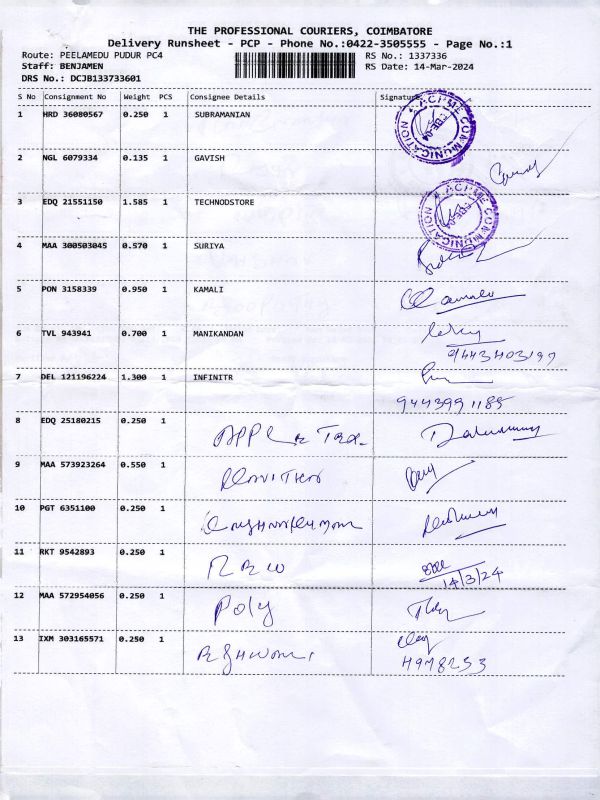 THE PROFESSIONAL COURIERS, COIMBATORE
Delivery Runsheet - PCP - Phone No.:0422-3505555 - Page No.:1
Route: PEELAMEDU PUDUR PC4 RS No.: 1337336
Staff: BENJAMEN RS Date: 14-Mar-2024
DRS No.: DCJB133733601
S No Consignment No Weight PCS Consignee Details Signature
1 HRD 36080567 0.250 1 SUBRAMANIAN
ACPME COMMUNICATION
2 NGL 6079334 0.135 1 GAVISH
3 EDQ 21551150 1.585 1 TECHNODSTORE
ACPME COMMUNICATION
4 MAA 300503045 0.570 1 SURIYA
5 PON 3158339 0.950 1 KAMALI
6 TVL 943941 0.700 1 MANIKANDAN
7 DEL 121196224 1.300 1 INFINITR
9443991185
8 EDQ 25180215 0.250 1
9 MAA 573923264 0.550 1
10 PGT 6351100 0.250 1
11 RKT 9542893 0.250 1
14/3/24
12 MAA 572954056 0.250 1 Poly
13 IXM 303165571 0.250 1